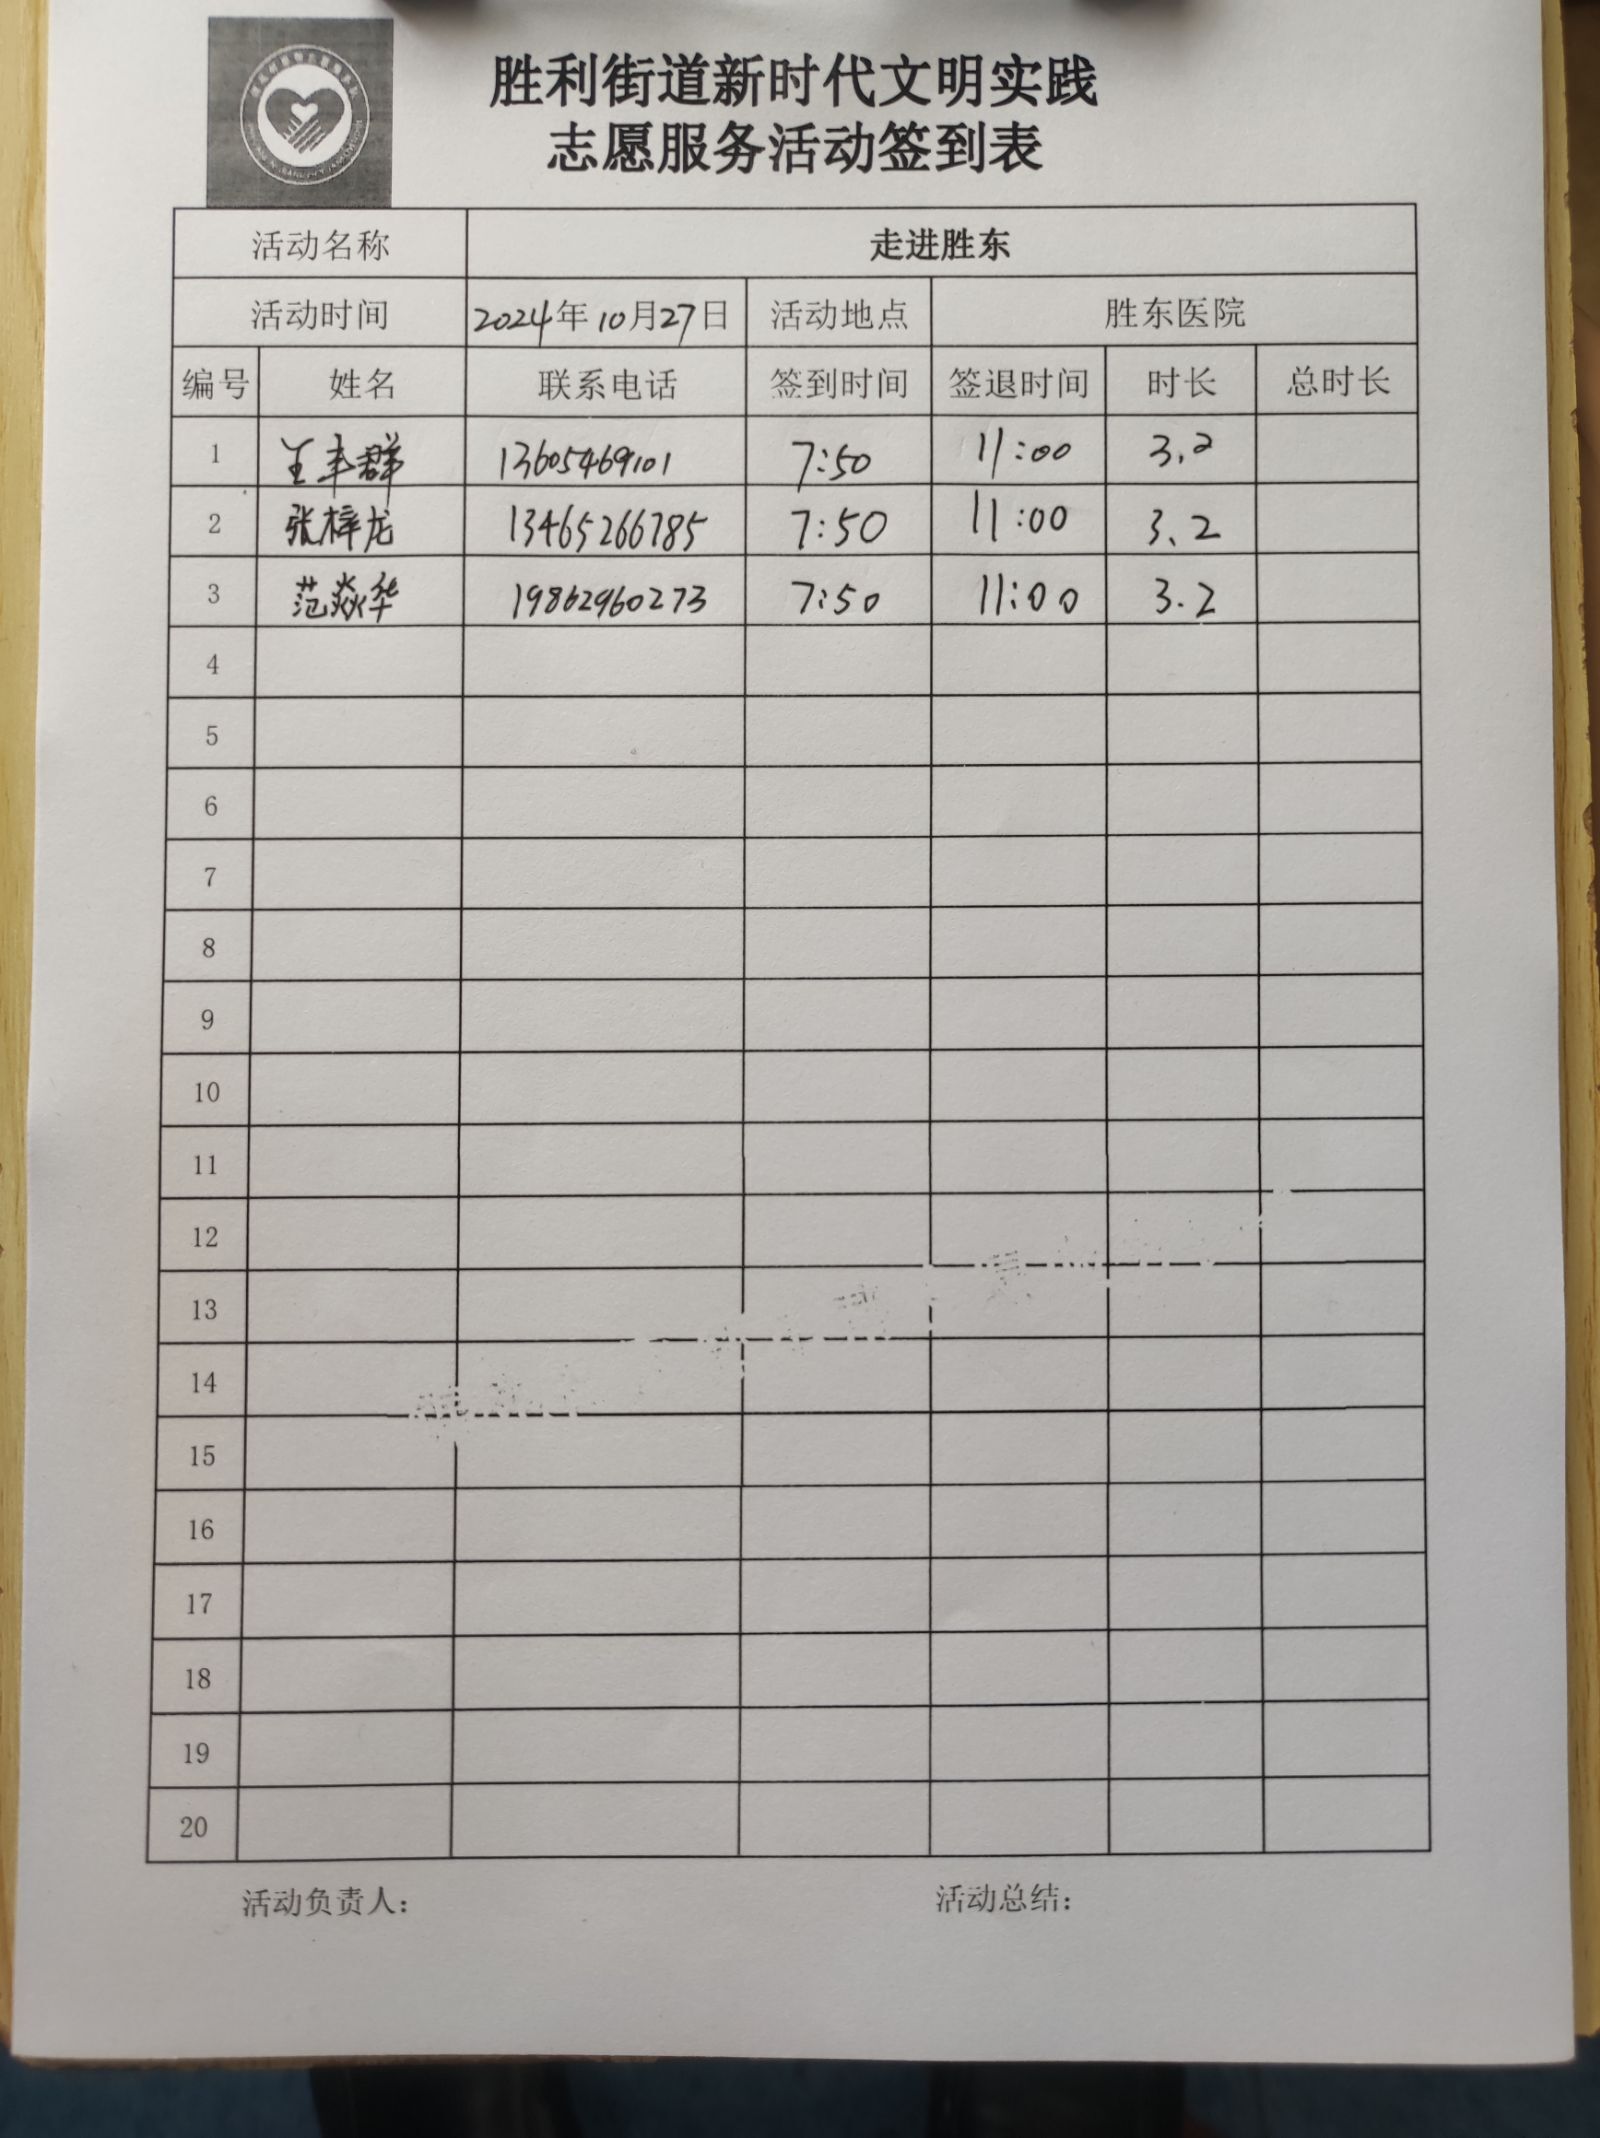 胜利街道新时代文明实践
志愿服务活动签到表
活动名称 走进胜东
活动时间 2024年10月27日 活动地点 胜东医院
编号 姓名 联系电话 签到时间 签退时间 时长 总时长
1 王丰群 13605469101 7:50 11:00 3.2
2 张梓龙 13465266785 7:50 11:00 3.2
3 范焱华 19862960273 7:50 11:00 3.2
4
5
6
7
8
9
10
11
12
13
14
15
16
17
18
19
20
活动负责人: 活动总结: